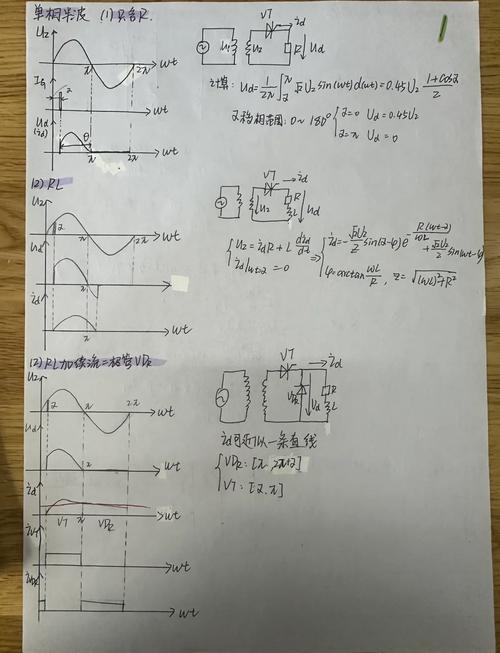 单相半波 (1) 只含R.
U2
ωt
π
2π
Ig
α
Ud
(id)
θ
π
2π
ωt
VT
id
U1
U2
R
Ud
计算: Ud=1/2π ∫απ √2U2sin(ωt)d(ωt)=0.45U2 (1+cosα)/2
α移相范围: 0~180° { α=0 Ud=0.45U2
α=π Ud=0
(2) RL
U2
α
π
2π
ωt
Ud
ωt
id
ωt
VT
id
U2
R
L
Ud
{ U2=idR+L did/dt
id|ωt=α=0
⇒ { id=-√2U2/Z sin(α-φ)e^-R(ωt-α)/ωL +√2U2/Z sin(ωt-φ)
φ=arctan ωL/R, Z=√(ωL)²+R²
(2) RL加续流二极管VDR
U2
α
π
2π
ωt
Ud
π
ωt
id
VT
π
VDR
ωt
iVT
ωt
iVDR
ωt
VT
id
VDR
Ud
R
L
id可近似一条直线
{ VDR: [π, 2π+α]
VT: [α, π]
1